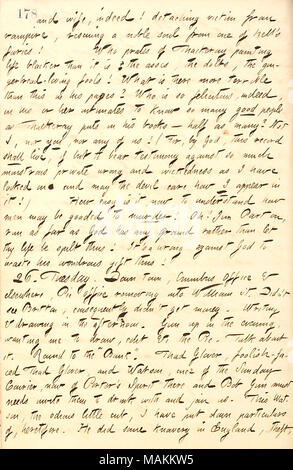 178
and wife, indeed! detaching victim from
vampire, rescuing a noble soul from one of hell's
furies! Who prates of Thackeray painting
life blacker than it is? the asses, the dolts, the
gingerbread-loving fools! What is there more terrible
than this in his pages? Who is so felicitous, indeed
in his or her intimates to know so many good people
as Thackeray puts in his books — half as many? Not
I, nor you, nor any of us! (For, by God, this record
shall live, if but to bear testimony against so much
monstrous private wrong and wickedness as I have
looked on and may the devil care how I appear in
it!) How easy is it now to understand how
men may be goaded to murder! Oh! Jim Parton,
run as far as God has any ground rather than let
thy life be spilt thus! It's a wrong against God to
waste his wondrous gift thus!
26. Tuesday. Down town, Omnibus office &
elsewhere. Pic. office removing into William St. Didn't
see Britton, consequently didn't get money. Writing
& drawing in the afternoon. Gun up in the evening,
wanting me to draw, edit &c, the Pic. Talk about
it. Round to the Bank. Thad Glover, foolish-fa-
ced Thad Glover, and Watson, once of the Sunday
Courier, now of Porter's Spirit there and Bob Gun must
needs invite them to drink with and join us. This Wat-
son, the odious little cut, I have put down particulars
of, heretofore. He did some knavery in England, theft
alamy
MAKKW5
www.alamy.com